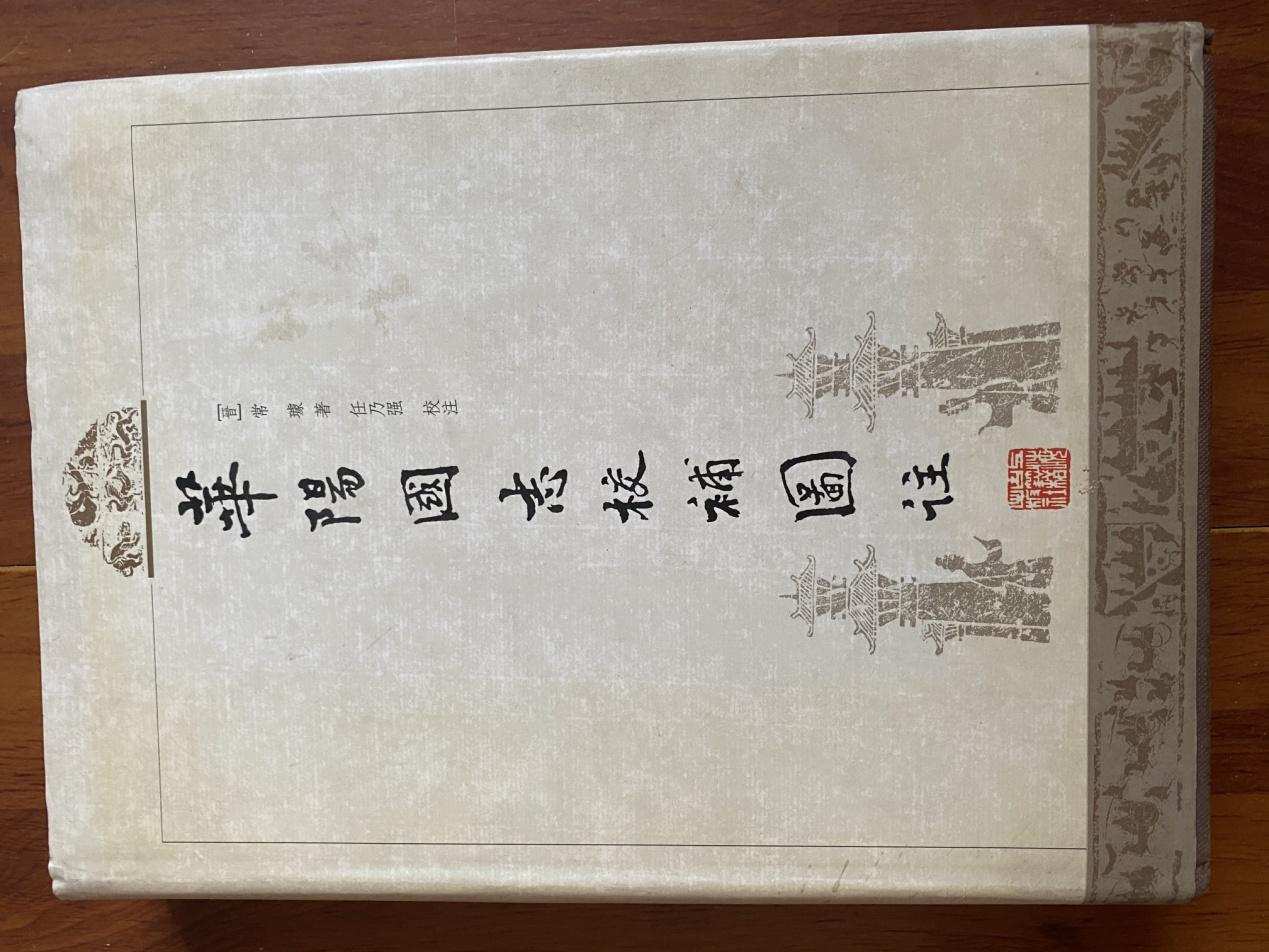 [晋]常 璩 著 任乃强 校注
華陽國志校補圖註